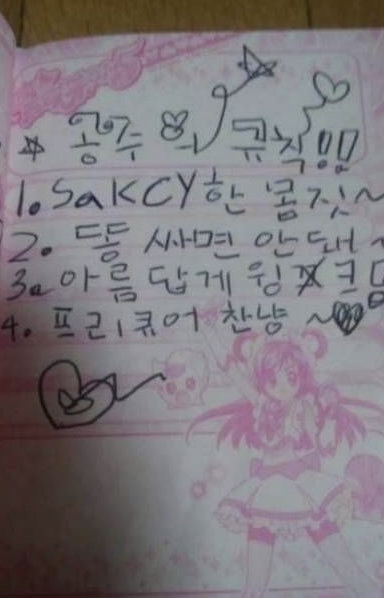 공주의 규칙!!
1. SaKCY한 몸짓~
2. 똥 싸면 안돼~
3. 아름답게 윙크
4. 프리큐어 찬양~